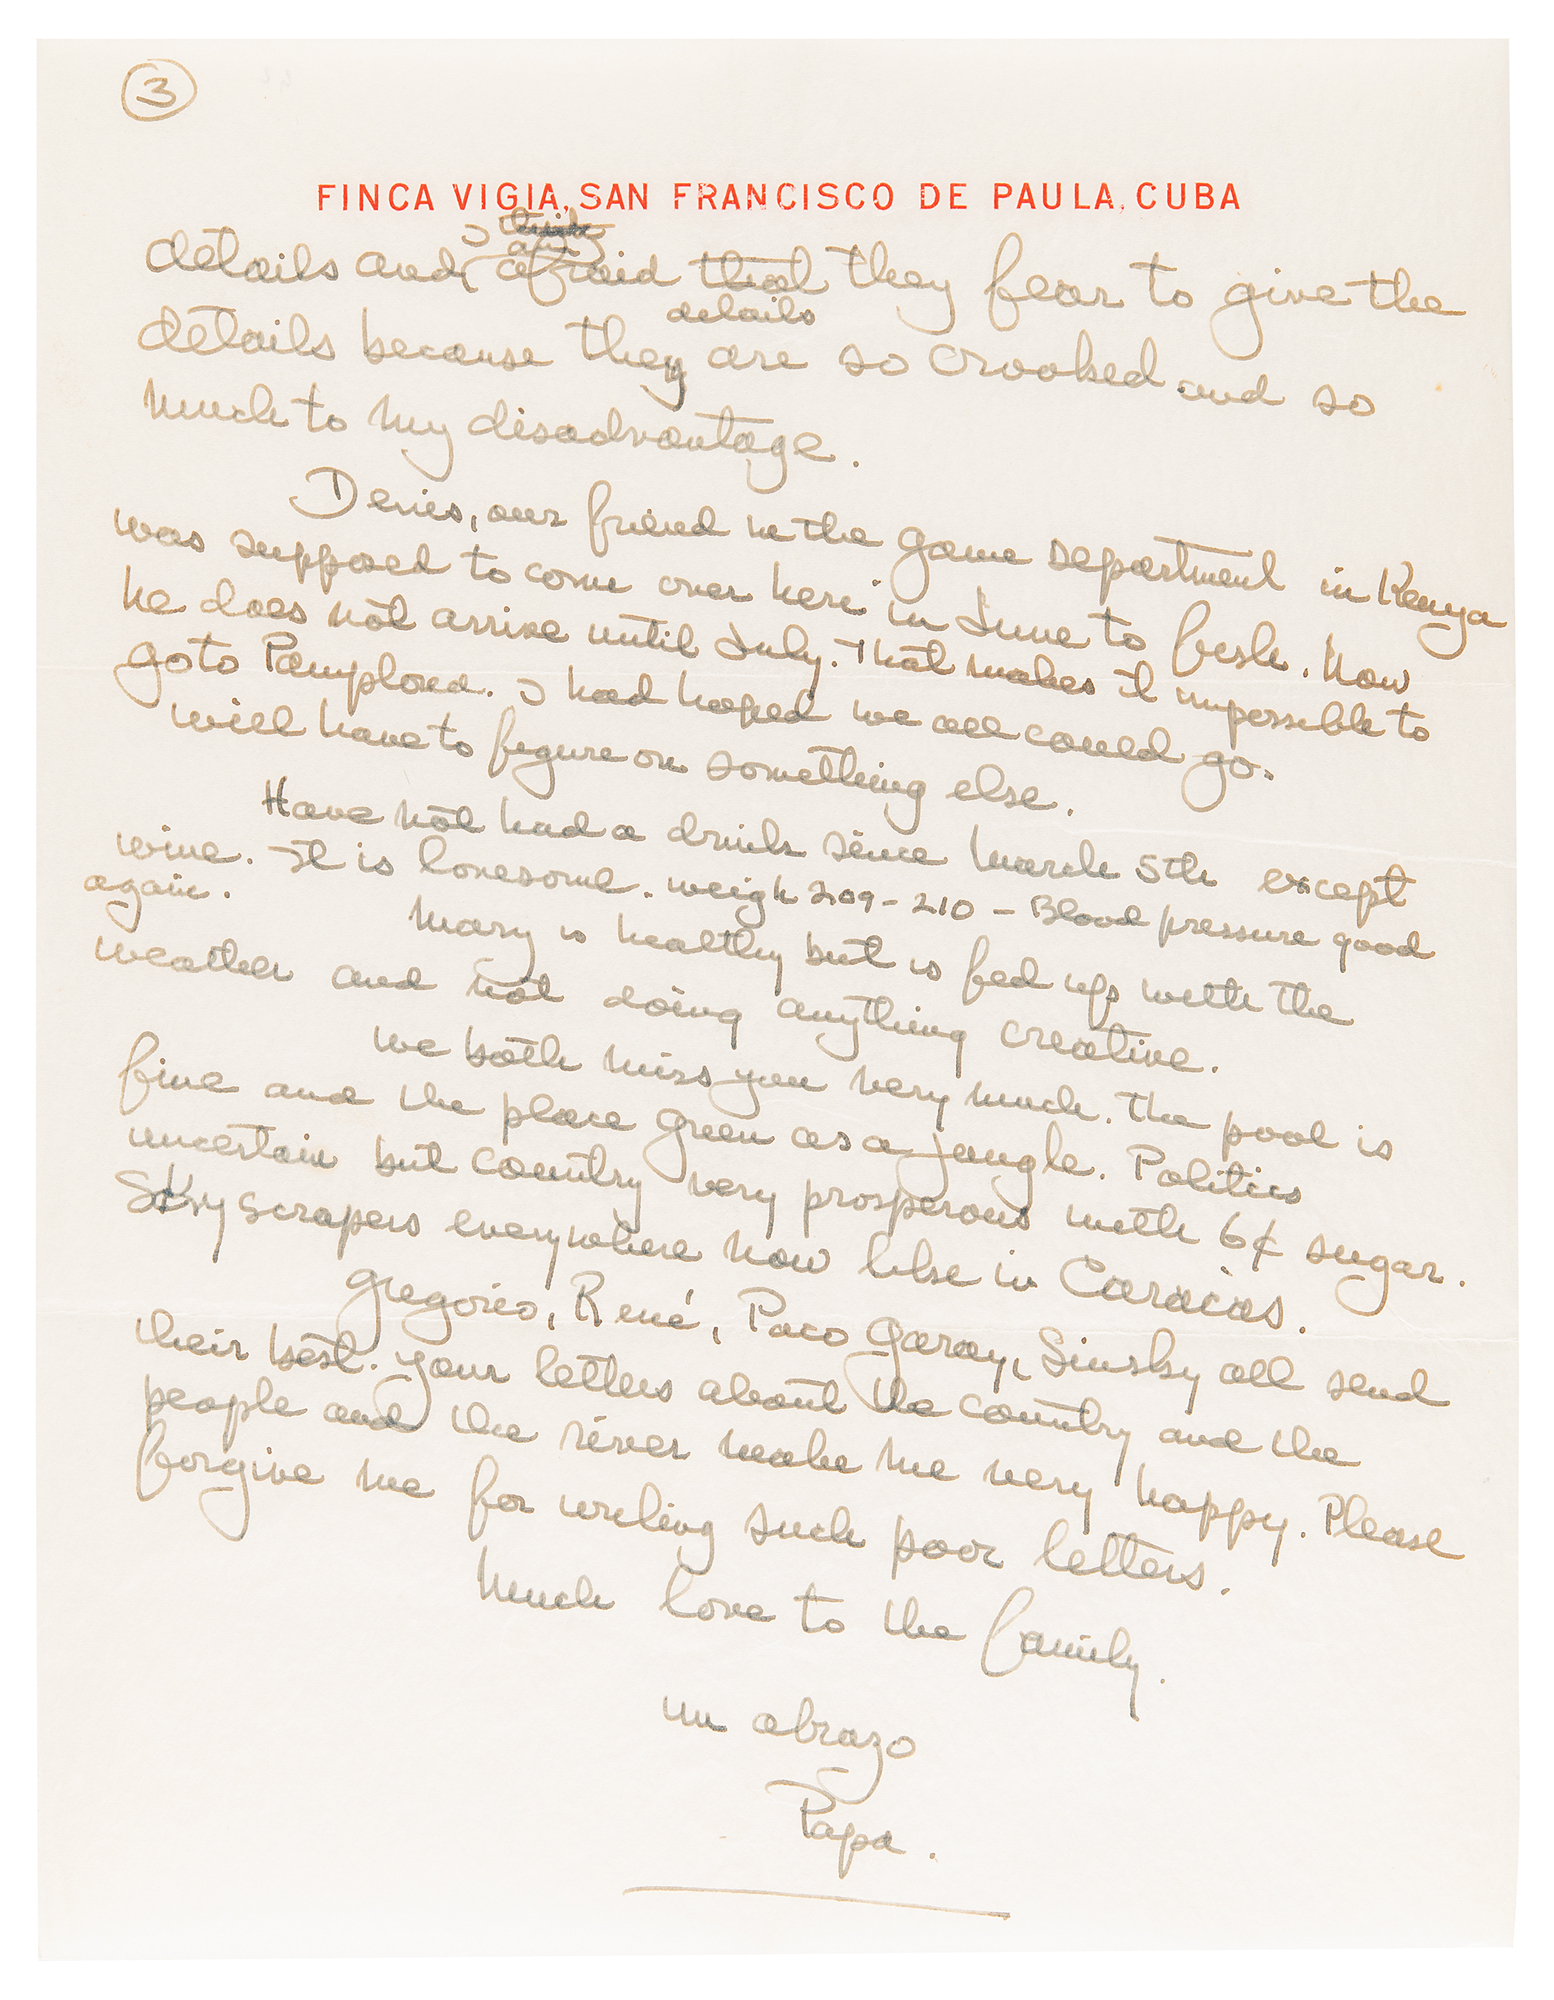 3
FINCA VIGIA, SAN FRANCISCO DE PAULA, CUBA
I think
am
details and afraid that they fear to give the
details
details because they are so crooked and so
much to my disadvantage.
Denis, our friend in the game department in Kenya
was supposed to come over here in June to fish. Now
he does not arrive until July. That makes it impossible to
go to Pamplona. I had hoped we all could go.
will have to figure on something else.
Have not had a drink since March 5th except
wine. It is lonesome. weigh 209-210 - Blood pressure good
again.
Mary is healthy but is fed up with the
weather and not doing anything creative.
We both miss you very much. The pool is
fine and the place green as a jungle. Politics
uncertain but country very prosperous with 6¢ sugar.
Skyscrapers everywhere now like in Caracas.
Gregorio, René, Paco Garay, Sinsky all send
their best. Your letters about the country and the
people and the river make me very happy. Please
forgive me for writing such poor letters.
Much love to the family.
un abrazo
Papa.